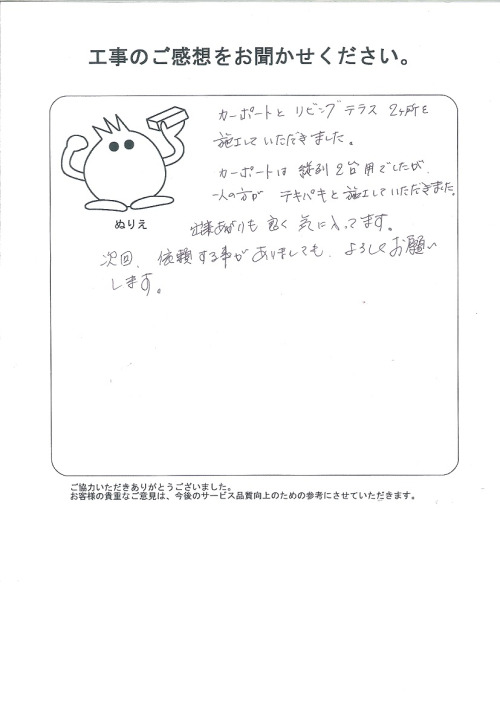 工事のご感想をお聞かせください。
カーポートと リビングテラス 2ヶ所を
施工していただきました。
カーポートは 縦列2台用でしたが、
一人の方が テキパキと施工していただきました。
ぬりえ
仕様あがりも 良く 気に入ってます。
次回、依頼する事がありましても、よろしくお願い
します。
ご協力いただきありがとうございました。
お客様の貴重なご意見は、今後のサービス品質向上のための参考にさせていただきます。